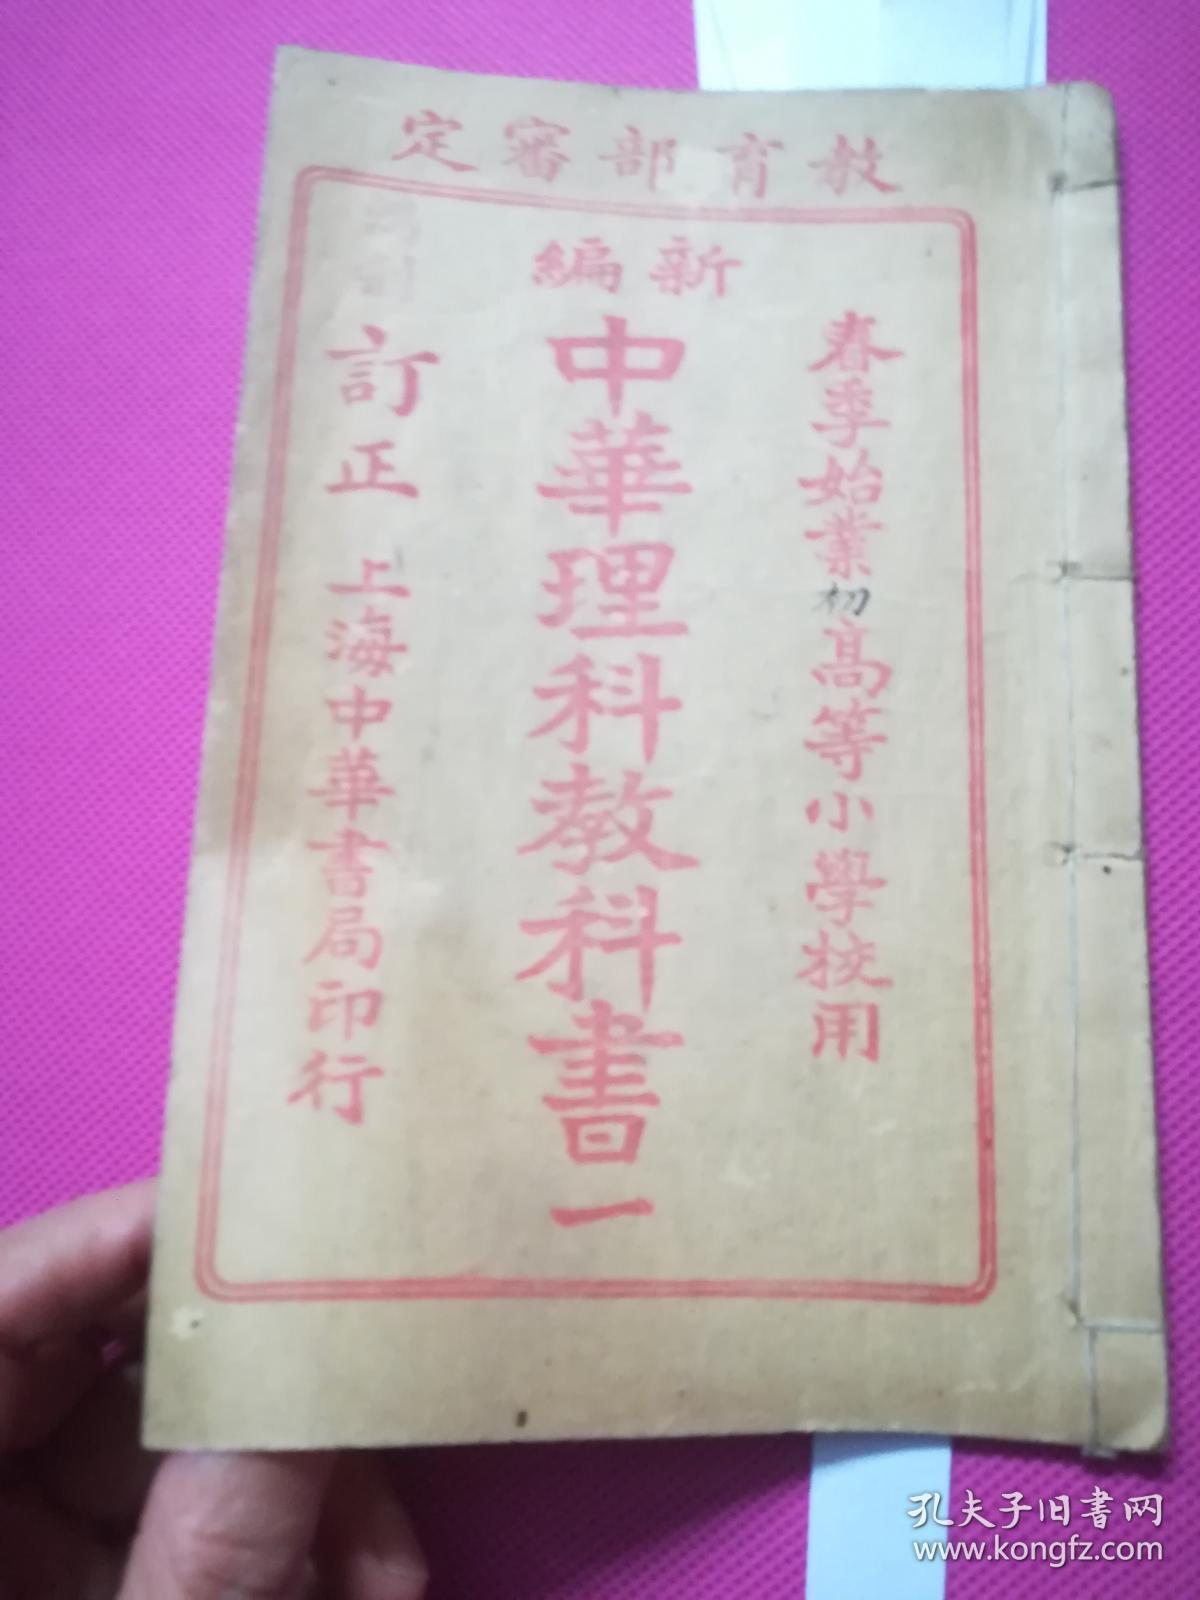 教育部審定
春季始業初高等小學校用
新編
中華理科教科書一
訂正
上海中華書局印行
孔夫子旧書网
www.kongfz.com